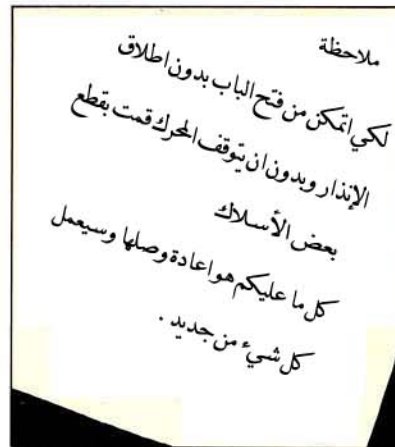 ملاحظة
لكي اتمكن من فتح الباب بدون اطلاق
الإنذار وبدون ان يتوقف المحرك قمت بقطع
بعض الأسلاك
كل ما عليكم هو اعادة وصلها وسيعمل
كل شيء من جديد .